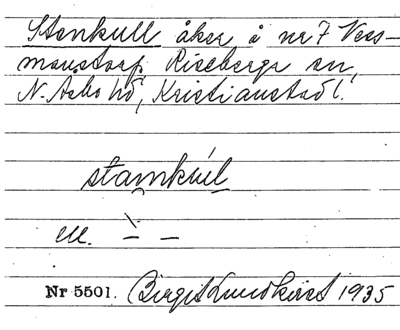 Stenkull åker å nr 7 Vess-
manstorp, Riseberga sn,
N. Åsbo hd, Kristianstads l.
stąmkùl
ell. ὶ — —
Nr 5501. Birgit Lundkvist 1935